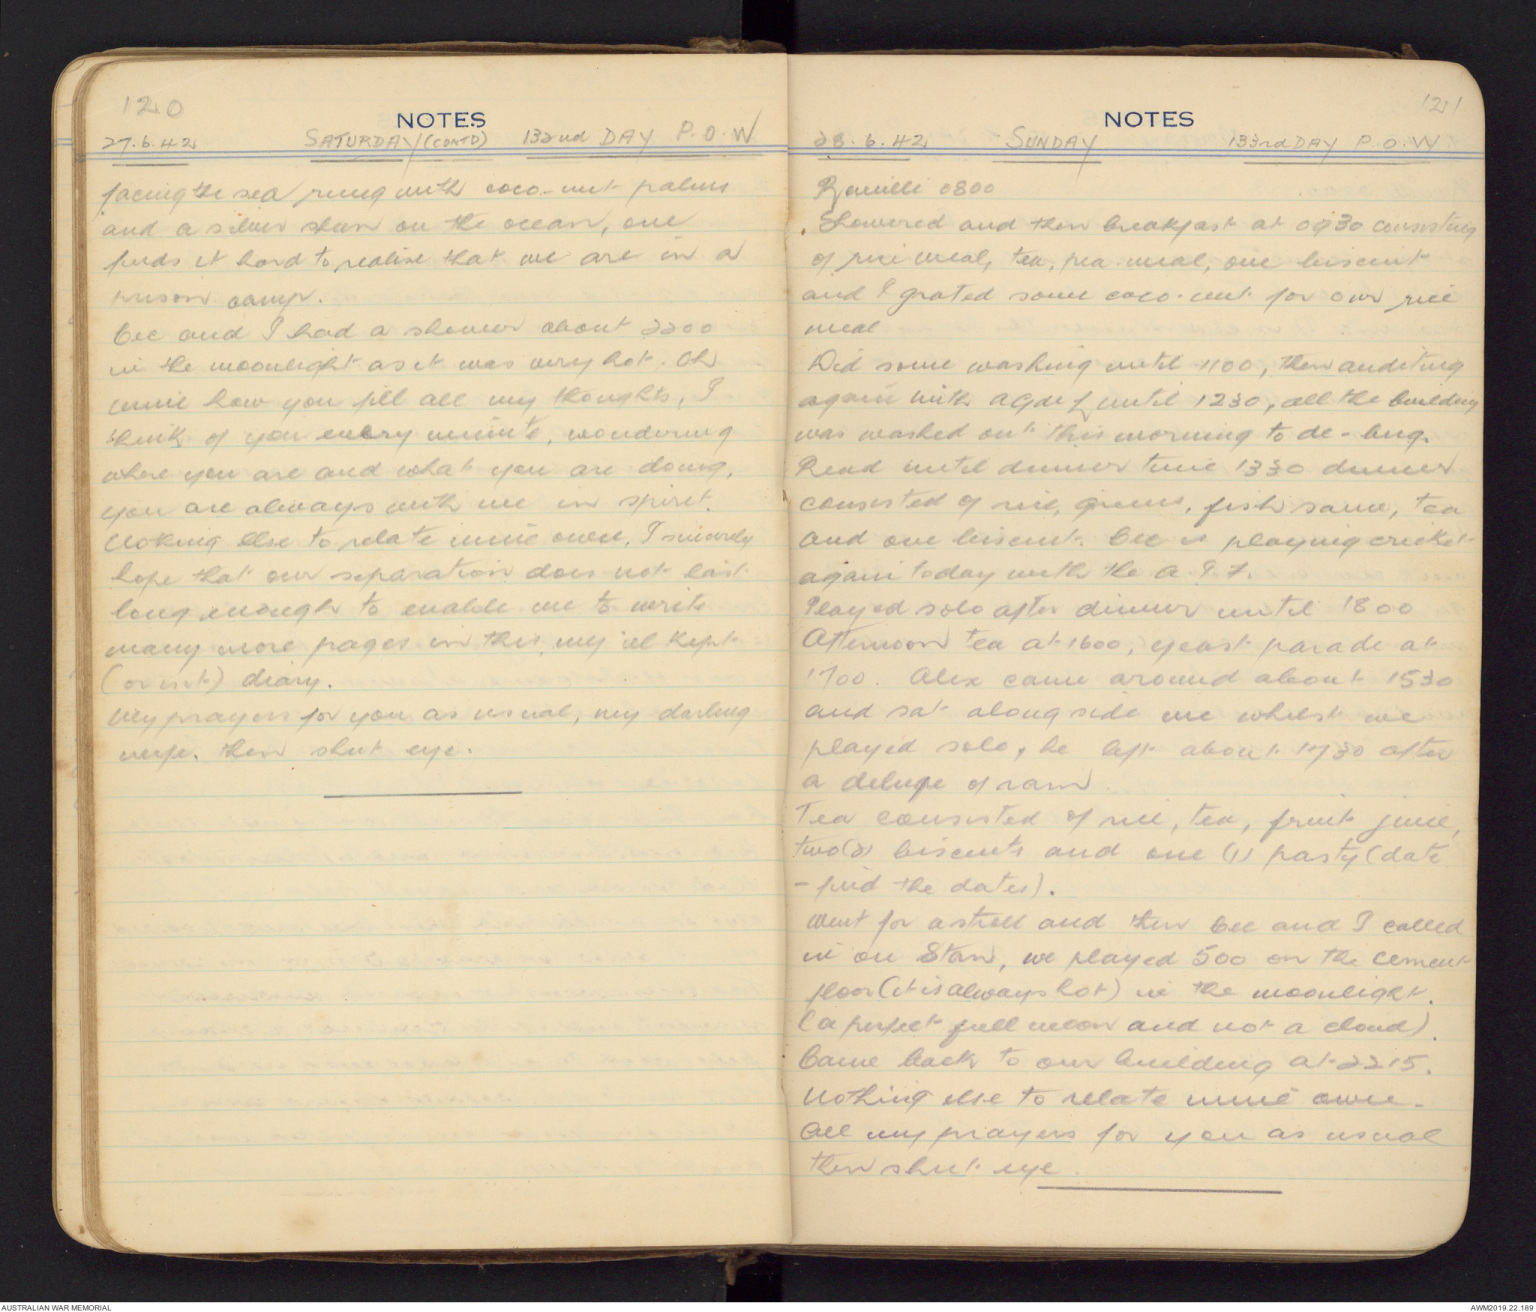 120
NOTES
27.6.42 SATURDAY (CONTD) 132nd DAY P.O.W
facing the sea, ring with coco-nut palms
and a silver sheen on the ocean, one
finds it hard to realise that we are in a
prison camp.
Cec and I had a shower about 2200
in the moonlight as it was very hot. Oh
mine how you fill all my thoughts, I
think of you every minute, wondering
where you are and what you are doing,
you are always with me in spirit.
Nothing else to relate mine own, I sincerely
hope that our separation does not last
long enough to enable me to write
many more pages in this, my ill kept
(or isn't) diary.
My prayers for you as usual, my darling
wife. then shut eye.
121
NOTES
28.6.42 SUNDAY 133rd DAY P.O.W
Reveille 0800
Showered and then breakfast at 0930 consisting
of rice meal, tea, pea meal, one biscuit
and I grated some coco-nut for our rice
meal
Did some washing until 1100, then auditing
again with until 1230, all the building
was washed out this morning to de-bug.
Read until dinner time 1330 dinner
consisted of rice, greens, fish same, tea
and one biscuit. Cec is playing cricket
again today with the A.I.F.
Played solo after dinner until 1800
Afternoon tea at 1600, yeast parade at
1700. Alex came around about 1530
and sat alongside me whilst we
played solo, he left about 1730 after
a deluge of rain
Tea consisted of rice, tea, fruit juice,
two(2) biscuits and one (1) pasty (date
- find the dates).
Went for a stroll and then Cec and I called
in on Stan, we played 500 on the cement
floor (it is always hot) in the moonlight.
(a perfect full moon and not a cloud).
Came back to our building at 2215.
Nothing else to relate mine own.
All my prayers for you as usual
then shut eye.
AUSTRALIAN WAR MEMORIAL
AWM2019.22.189